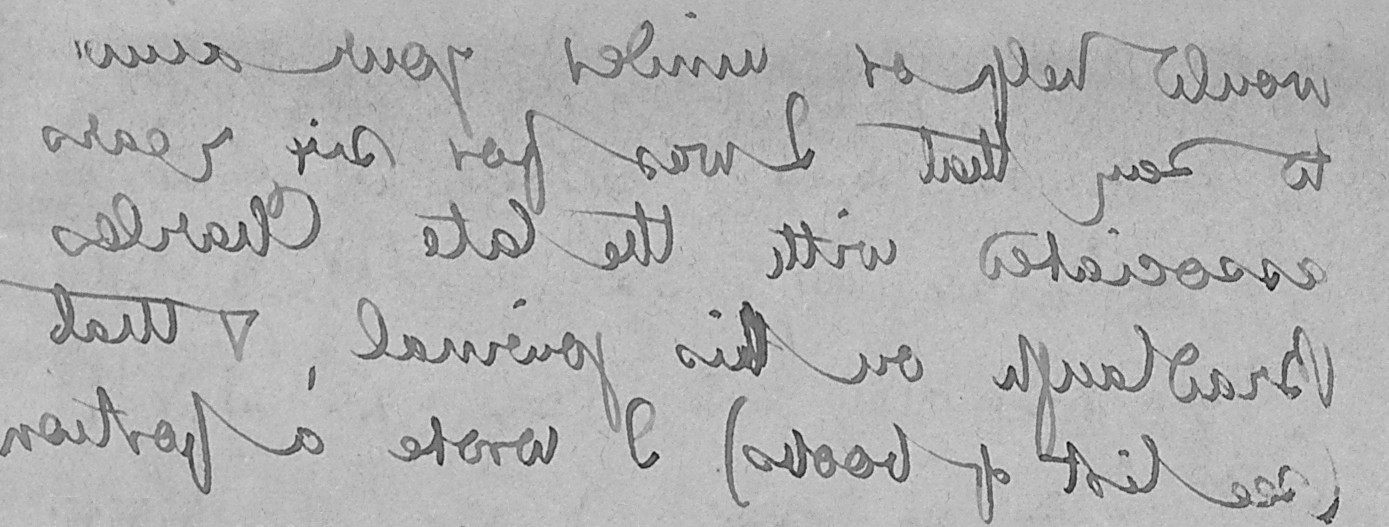 would help or your aims
to say that I was for six years
associated with the late Charles
Bradlaugh on his journal, & that
(see list of books) I wrote a portion